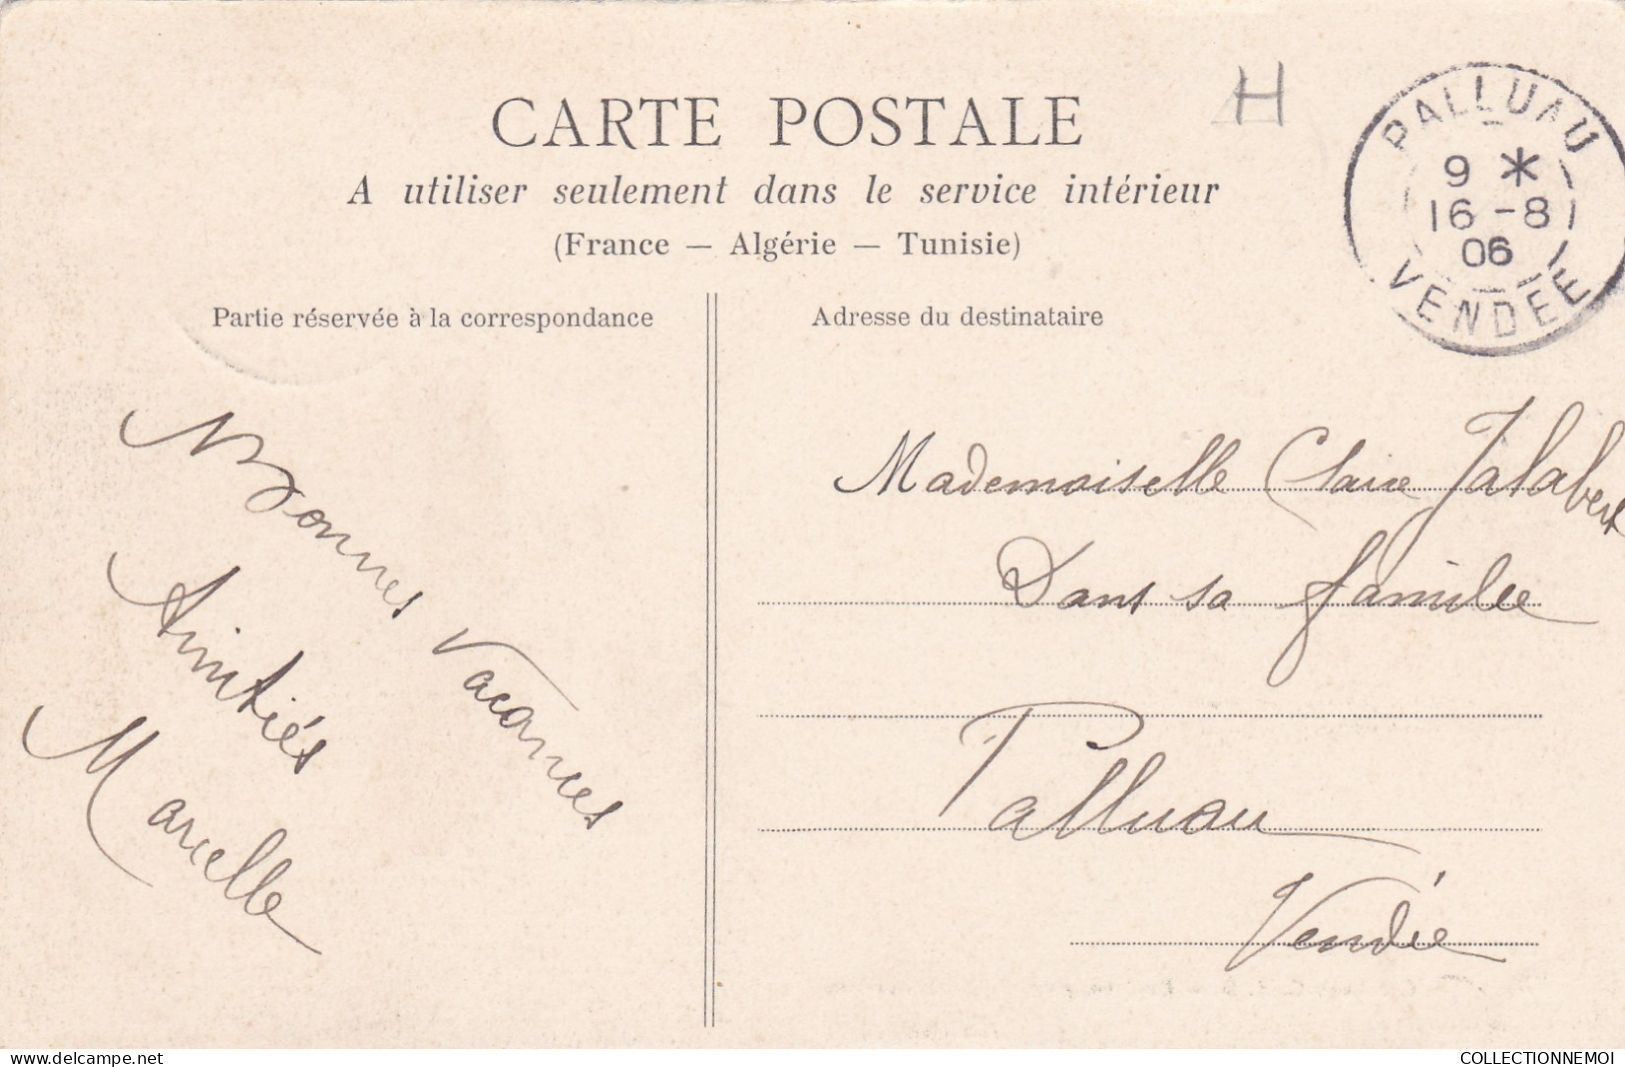 CARTE POSTALE
A utiliser seulement dans le service intérieur
(France — Algérie — Tunisie)
H
PALLUAU
9 *
16-8
06
VENDÉE
Partie réservée à la correspondance
Bonnes Vacances
Amitiés
Marcelle
Adresse du destinataire
Mademoiselle Claire Jalabert
Dans sa famille
Palluau
Vendée
delcampe.net
COLLECTIONNEMOI